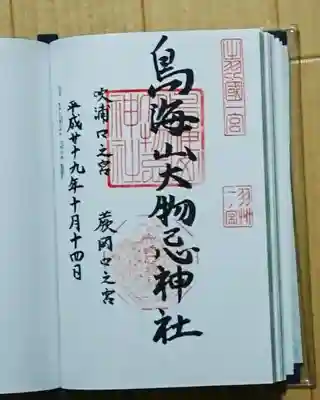 出羽國一宮
鳥海山大物忌神社
羽州一ノ宮
吹浦口之宮
蕨岡口之宮
平成廿十九年十月十四日